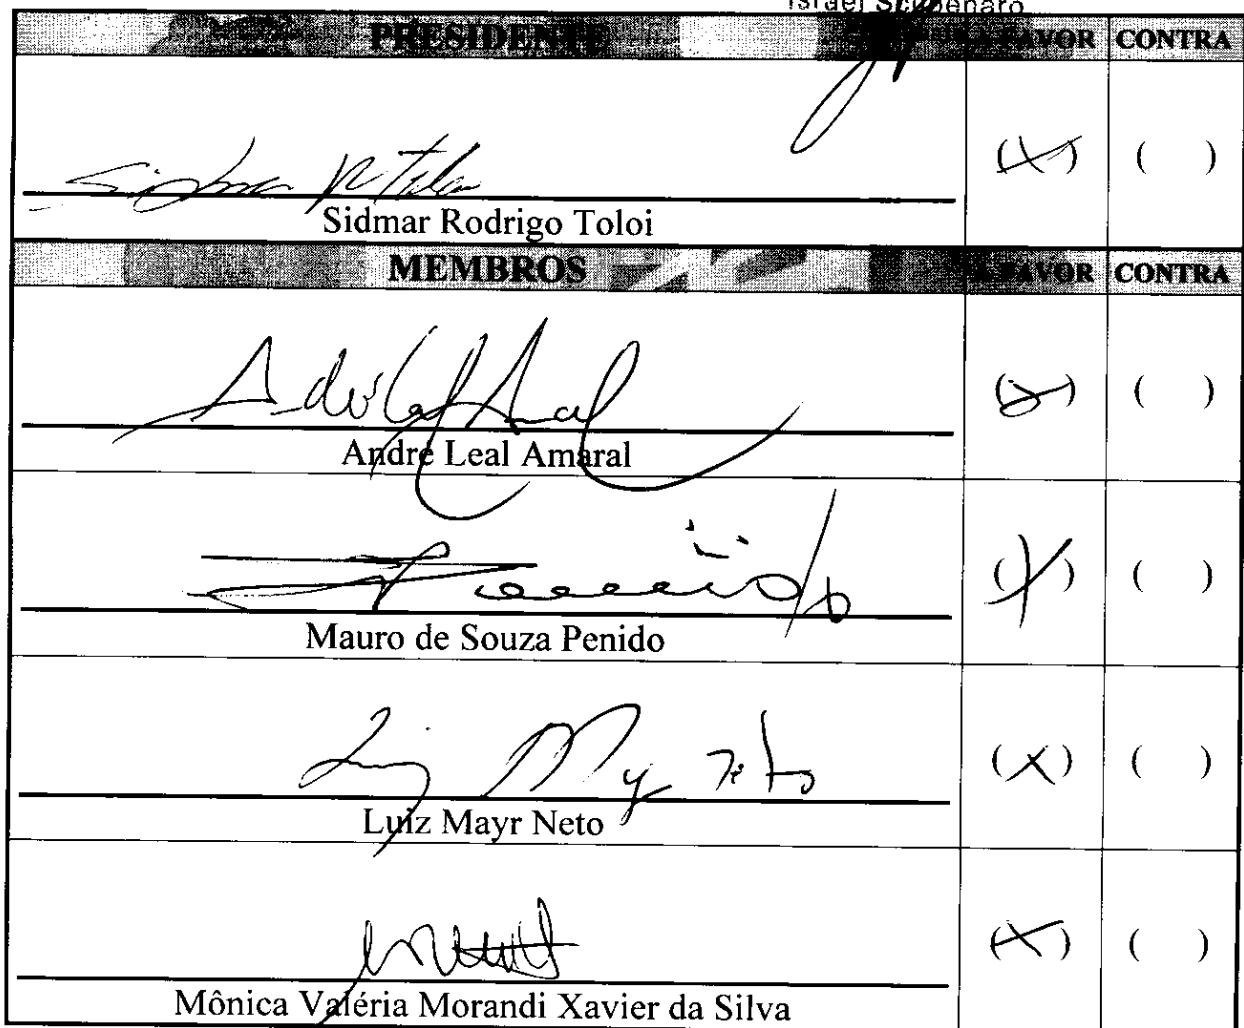 Israel Scupenaro
PRESIDENTE A FAVOR CONTRA
(X) ( )
Sidmar Rodrigo Toloi
MEMBROS A FAVOR CONTRA
(X) ( )
André Leal Amaral
(X) ( )
Mauro de Souza Penido
(X) ( )
Luiz Mayr Neto
(X) ( )
Mônica Valéria Morandi Xavier da Silva